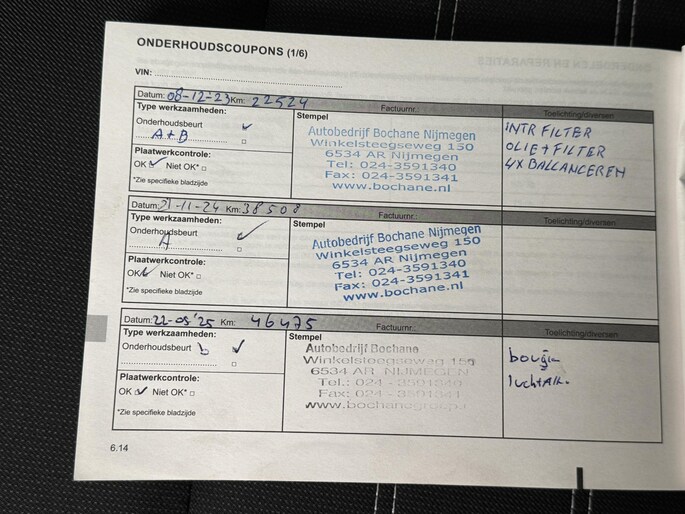 ONDERHOUDSCOUPONS (1/6)
VIN:
Datum: 08-12-23 Km: 22524 Factuurnr.: Toelichting/diversen
Type werkzaamheden:
Onderhoudsbeurt
A+B
Plaatwerkcontrole:
OK Niet OK*
*Zie specifieke bladzijde
Stempel
Autobedrijf Bochane Nijmegen
Winkelsteegseweg 150
6534 AR Nijmegen
Tel: 024-3591340
Fax: 024-3591341
www.bochane.nl
INTR FILTER
OLIE + FILTER
4X BALLANCEREN
Datum: 21-11-24 Km: 38508 Factuurnr.: Toelichting/diversen
Type werkzaamheden:
Onderhoudsbeurt
A
Plaatwerkcontrole:
OK Niet OK*
*Zie specifieke bladzijde
Stempel
Autobedrijf Bochane Nijmegen
Winkelsteegseweg 150
6534 AR Nijmegen
Tel: 024-3591340
Fax: 024-3591341
www.bochane.nl
Datum: 22-05-'25 Km: 46475 Factuurnr.: Toelichting/diversen
Type werkzaamheden:
Onderhoudsbeurt b
Plaatwerkcontrole:
OK Niet OK*
*Zie specifieke bladzijde
Stempel
Autobedrijf Bochane
Winkelsteegseweg 150
6534 AR NIJMEGEN
Tel.: 024 - 3591340
Fax: 024 - 3591341
www.bochanegroep.nl
6.14